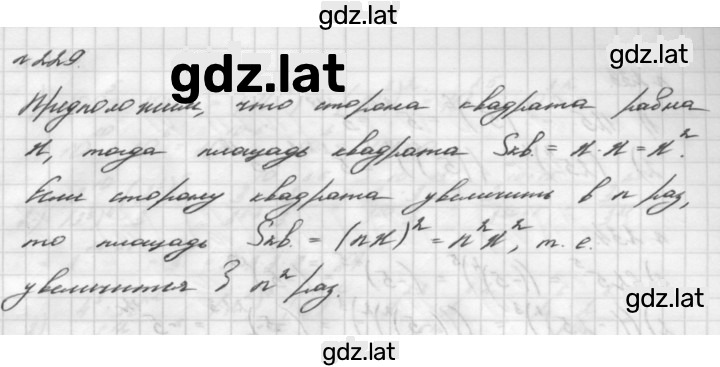 gdz.lat
gdz.lat
№229.
gdz.lat
Предположим, что сторона квадрата равна
x, тогда площадь квадрата Sкв. = x·x = x².
Если сторону квадрата увеличить в n раз,
то площадь Sкв. = (nx)² = n²x², т. е.
увеличится в n² раз.
gdz.lat
gdz.lat